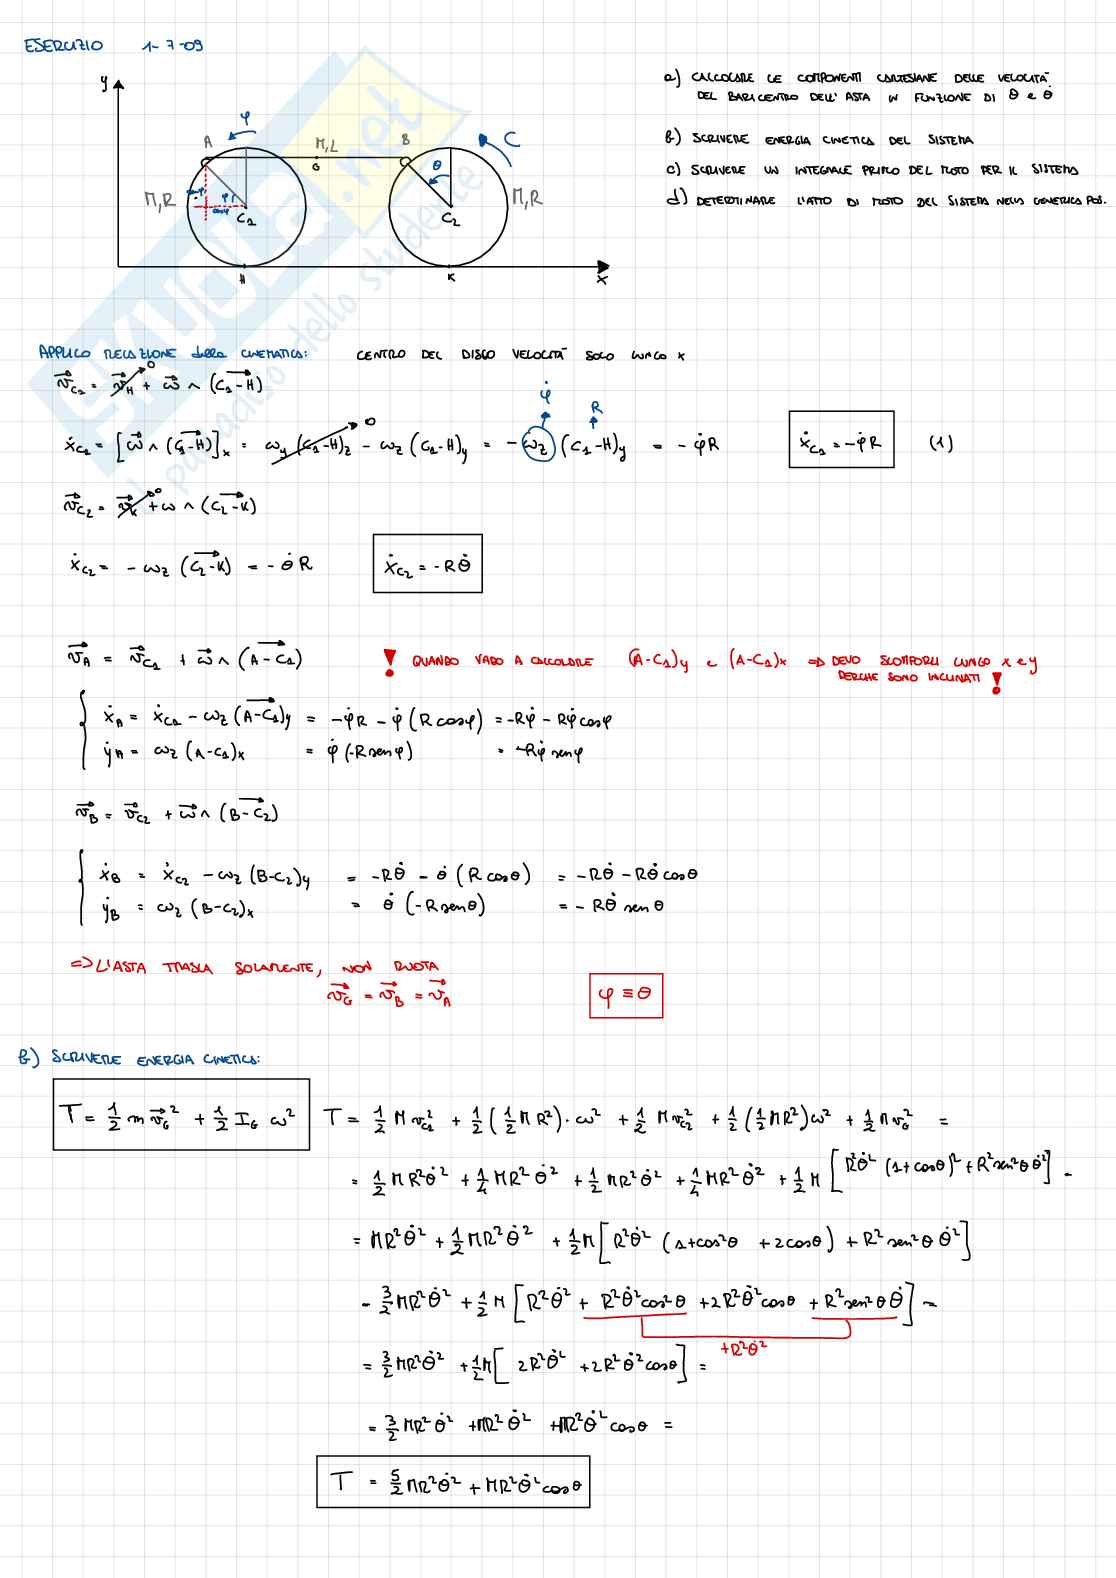 ESERCIZIO 1-7-09
a) CALCOLARE LE COMPONENTI CARTESIANE DELLE VELOCITÀ
DEL BARICENTRO DELL'ASTA IN FUNZIONE DI θ e θ̇
b) SCRIVERE ENERGIA CINETICA DEL SISTEMA
c) SCRIVERE UN INTEGRALE PRIMO DEL MOTO PER IL SISTEMA
d) DETERMINARE L'ATTO DI MOTO DEL SISTEMA NELLA GENERICA POS.
y
φ
A
M,L
G
B
θ
C
M,R
φ
C₁
C₂
M,R
H
K
x
SKUOLA.net
il paradiso dello studente
APPLICO RELAZIONE della CINEMATICA: CENTRO DEL DISCO VELOCITÀ SOLO LUNGO X
v⃗_C₁ = v⃗_H + ω⃗ ∧ (C₁-H) 0
φ̇ R
ẋ_C₁ = [ω⃗ ∧ (C₁-H)]ₓ = ω_y (C₁-H)_z - ω_z (C₁-H)_y = - ω_z (C₁-H)_y = - φ̇R ẋ_C₁ = -φ̇R (1)
v⃗_C₂ = v⃗_K + ω ∧ (C₂-K) 0
ẋ_C₂ = - ω_z (C₂-K) = - θ̇ R ẋ_C₂ = -Rθ̇
v⃗_A = v⃗_C₁ + ω⃗ ∧ (A-C₁) ! QUANDO VADO A CALCOLARE (A-C₁)y e (A-C₁)x ⇒ DEVO SCOMPORLI LUNGO x e y
PERCHÈ SONO INCLINATI !
ẋ_A = ẋ_C₁ - ω_z (A-C₁)y = -φ̇R - φ̇ (R cosφ) = -Rφ̇ - Rφ̇ cosφ
ẏ_A = ω_z (A-C₁)x = φ̇ (-R senφ) = -Rφ̇ senφ
v⃗_B = v⃗_C₂ + ω⃗ ∧ (B-C₂)
ẋ_B = ẋ_C₂ - ω_z (B-C₂)y = -Rθ̇ - θ̇ (R cosθ) = -Rθ̇ - Rθ̇ cosθ
ẏ_B = ω_z (B-C₂)x = θ̇ (-R senθ) = - Rθ̇ sen θ
=> L'ASTA TRASLA SOLAMENTE, NON RUOTA
v⃗_G = v⃗_B = v⃗_A φ ≡ θ
b) SCRIVERE ENERGIA CINETICA:
T = 1/2 m v⃗_G² + 1/2 I_G ω² T = 1/2 M v_C₁² + 1/2 (1/2 M R²)·ω² + 1/2 M v_C₂² + 1/2 (1/2 MR²)ω² + 1/2 M v_G² =
= 1/2 M R²θ̇² + 1/4 MR² θ̇² + 1/2 MR² θ̇² + 1/4 MR² θ̇² + 1/2 M [R²θ̇² (1+cosθ)² + R² sen²θ θ̇²] =
= MR² θ̇² + 1/2 MR² θ̇² + 1/2 M [R²θ̇² (1+cos²θ + 2cosθ) + R² sen²θ θ̇²]
= 3/2 MR² θ̇² + 1/2 M [R²θ̇² + R²θ̇² cos²θ + 2R²θ̇² cosθ + R² sen²θ θ̇] =
+R²θ̇²
= 3/2 MR² θ̇² + 1/2 M [2R²θ̇² + 2R² θ̇² cosθ] =
= 3/2 MR² θ̇² + MR² θ̇² + MR² θ̇² cosθ =
T = 5/2 MR² θ̇² + MR² θ̇² cosθ